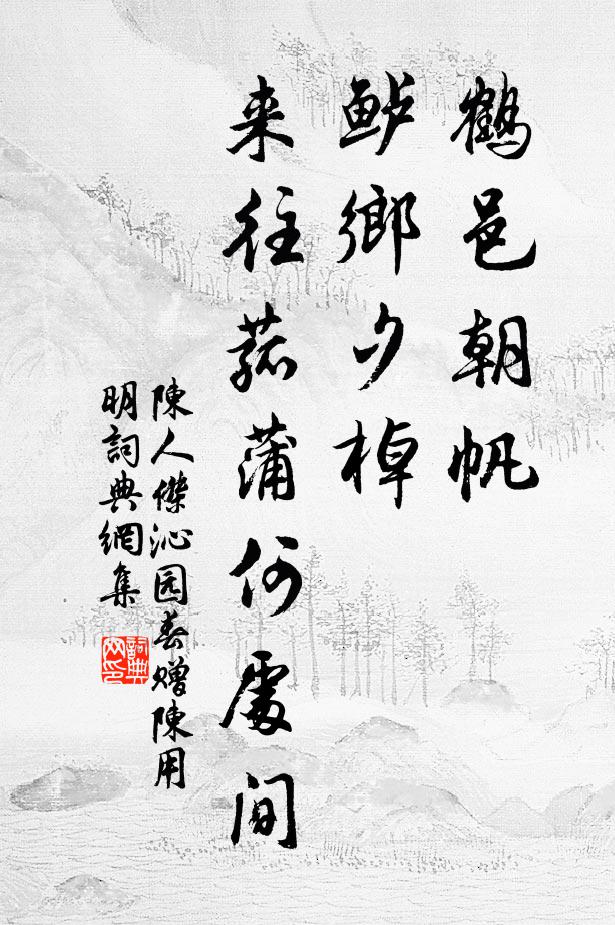 鶴邑朝帆
鲈鄉夕棹
来往菰蒲何處间
陳人傑沁园春赠陳用
明詞典網集
詞典
网印